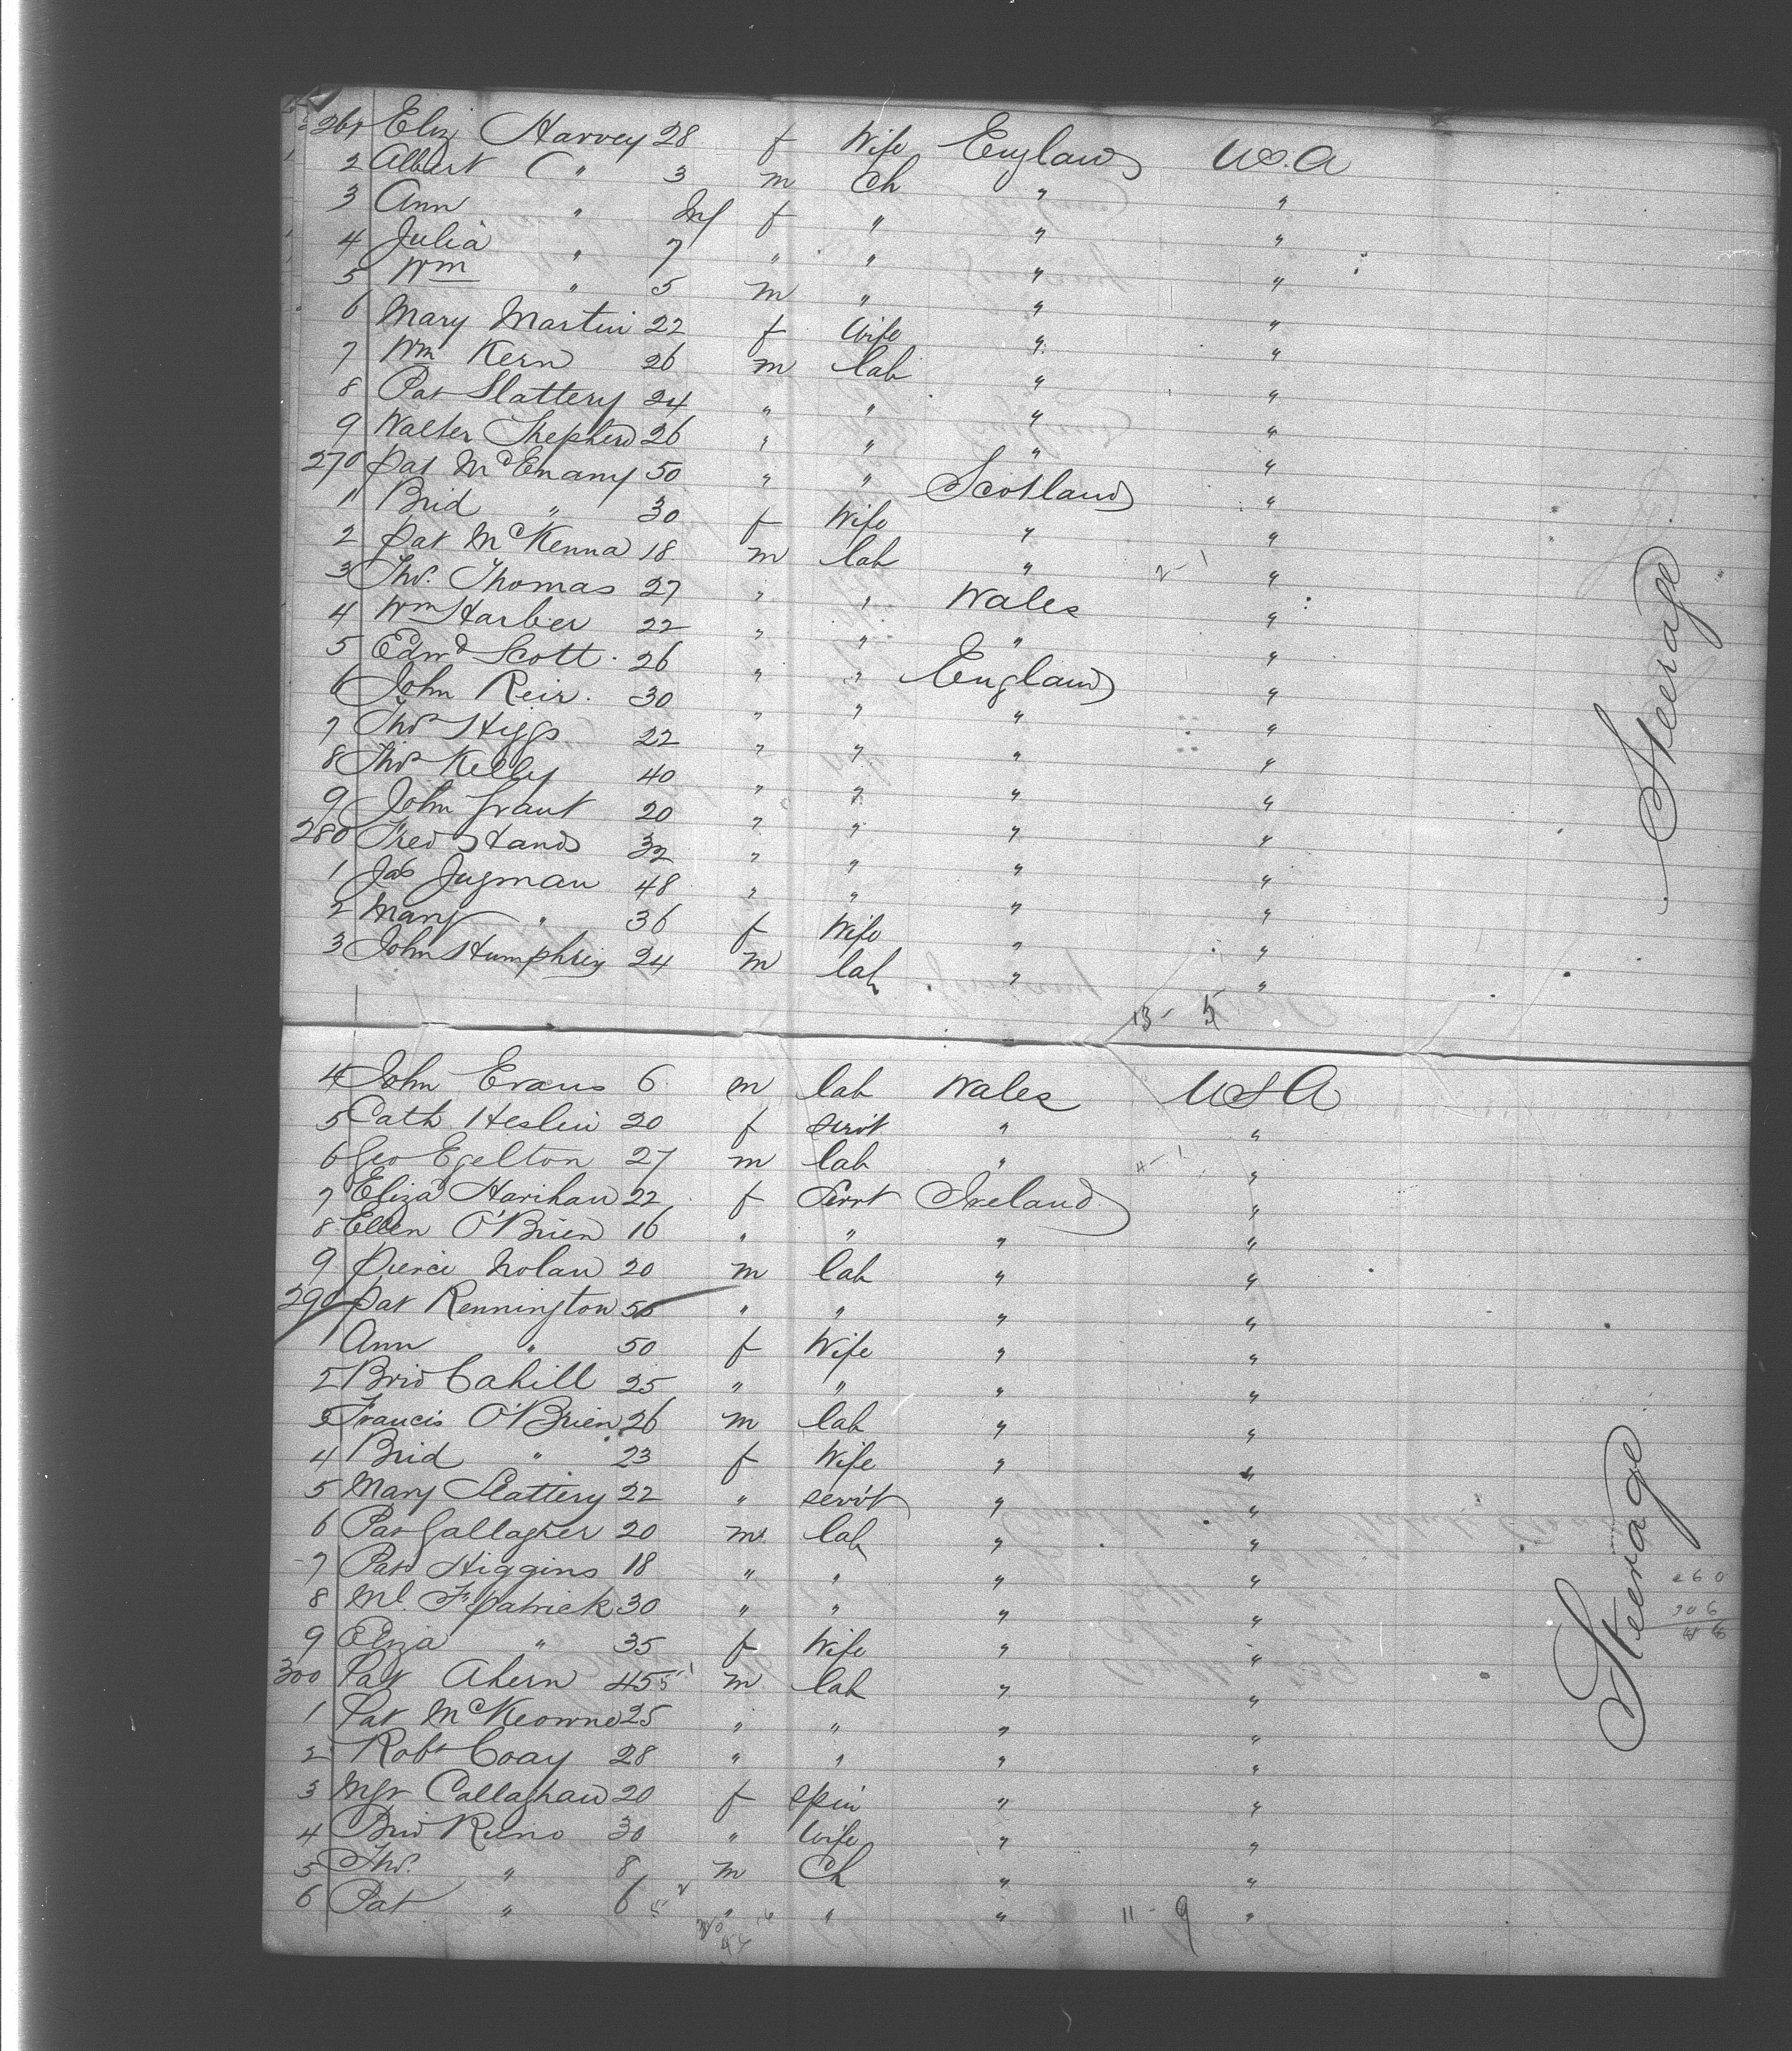 261 Eliz Harvey 28 f Wife England U.S.A
2 Albert " 3 m Ch " "
3 Ann " Inf f " " "
4 Julia " 7 " " " "
5 Wm " 5 m " " "
6 Mary Martin 22 f Wife " "
7 Wm Kern 26 m lab " "
8 Pat Slattery 24 " " " "
9 Walter Shepherd 26 " " " "
270 Pat McEnany 50 " " Scotland "
1 Brid " 30 f Wife " "
2 Pat McKenna 18 m lab " 2-1 "
3 Thos. Thomas 27 " " Wales "
4 Wm Harber 22 " " " "
5 Edwd Scott 26 " " England "
6 John Reir 30 " " " "
7 Thos Higgs 22 " " " "
8 Thos Kelly 40 " " " "
9 John Grant 20 " " " "
280 Fred Hands 32 " " " "
1 Jas Jugman 48 " " " "
2 Mary " 36 f Wife " "
3 John Humphrey 24 m lab " "
13-5
Steerage
4 John Evans 6 m lab Wales U S A
5 Cath Heslin 20 f servt " "
6 Geo Egelton 27 m lab " 4-1 "
7 Eliza Harihan 22 f Servt Ireland "
8 Ellen O'Brien 16 " " " "
9 Pierce Nolan 20 m lab " "
290 Pat Rennington 50 " " " "
1 Ann " 50 f Wife " "
2 Brid Cahill 25 " " " "
3 Francis O'Brien 26 m lab " "
4 Brid " 23 f Wife " "
5 Mary Slattery 22 " servt " "
6 Pat Gallagher 20 m lab " "
7 Pat Higgins 18 " " " "
8 Ml. Fpatrick 30 " " " "
9 Eliza " 35 f Wife " "
300 Pat Ahern 45 m lab " "
1 Pat McKeowne 25 " " " "
2 Robt Coay 28 " " " "
3 Mgr Callaghan 20 f spin " "
4 Brid Reno 30 " Wife " "
5 Thos. " 8 m Ch " "
6 Pat " 6 " " " 11-9 "
Steerage